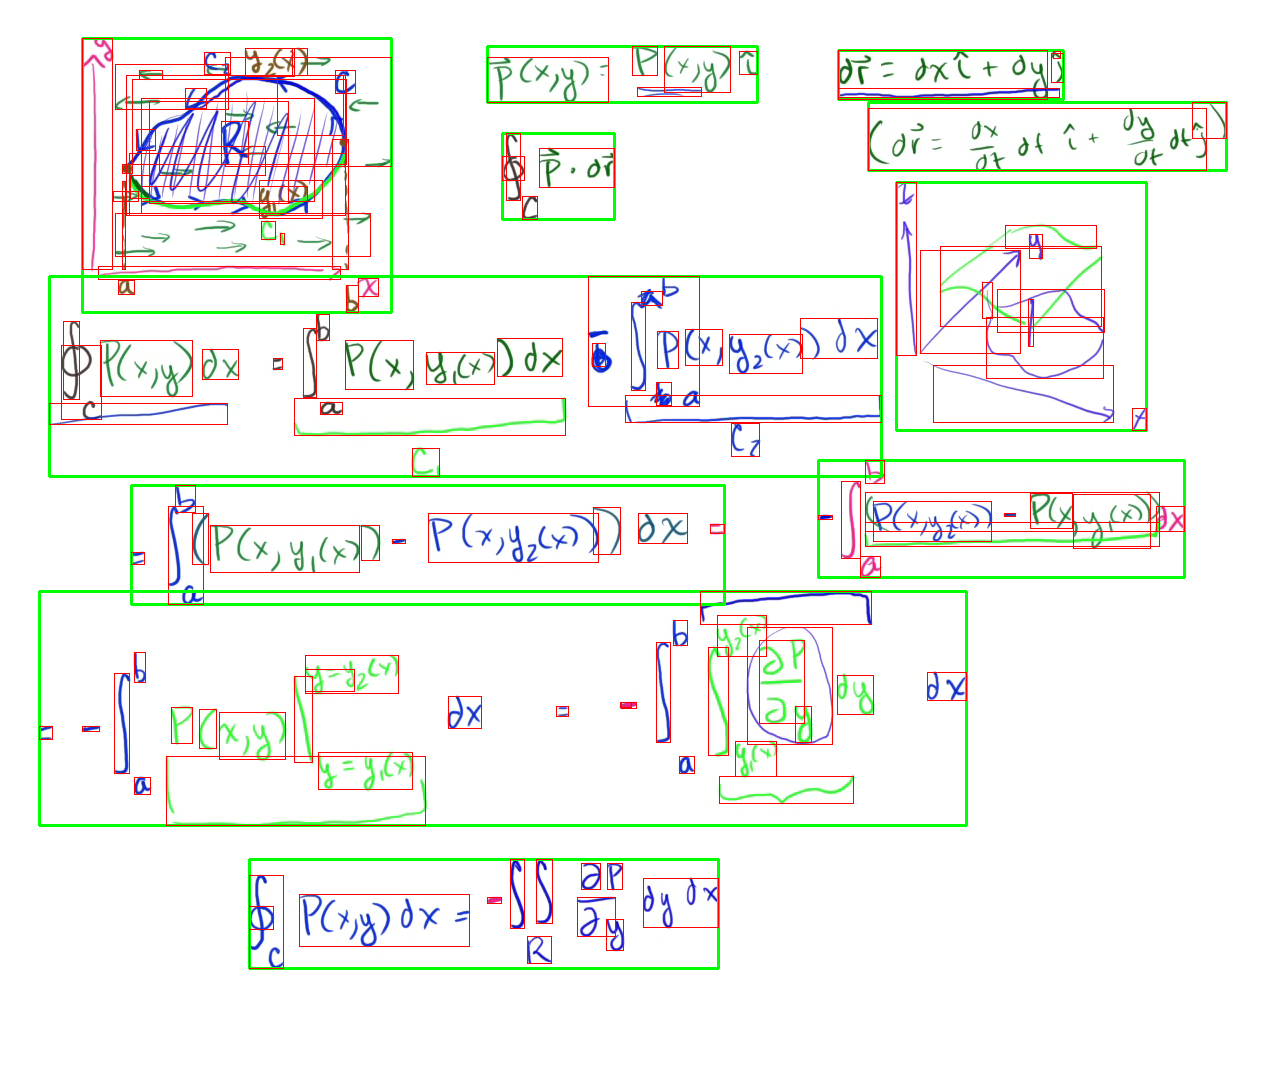 y
C₂ y₂(x)
C
R
y₁(x)
C₁
a b x
P⃗(x,y) = P(x,y) î
dr⃗ = dx î + dy ĵ
(dr⃗ = dx/dt dt î + dy/dt dt ĵ)
∮_C P⃗ · dr⃗
y
x
∮_C P(x,y) dx = ∫_a^b P(x, y₁(x)) dx - ∫_a^b P(x, y₂(x)) dx
C₁ C₂
= ∫_a^b (P(x, y₁(x)) - P(x, y₂(x))) dx =
- ∫_a^b (P(x, y₂(x)) - P(x, y₁(x))) dx
= - ∫_a^b P(x,y) |_{y = y₁(x)}^{y = y₂(x)} dx = - ∫_a^b ∫_{y₁(x)}^{y₂(x)} ∂P/∂y dy dx
∮_C P(x,y) dx = - ∬_R ∂P/∂y dy dx